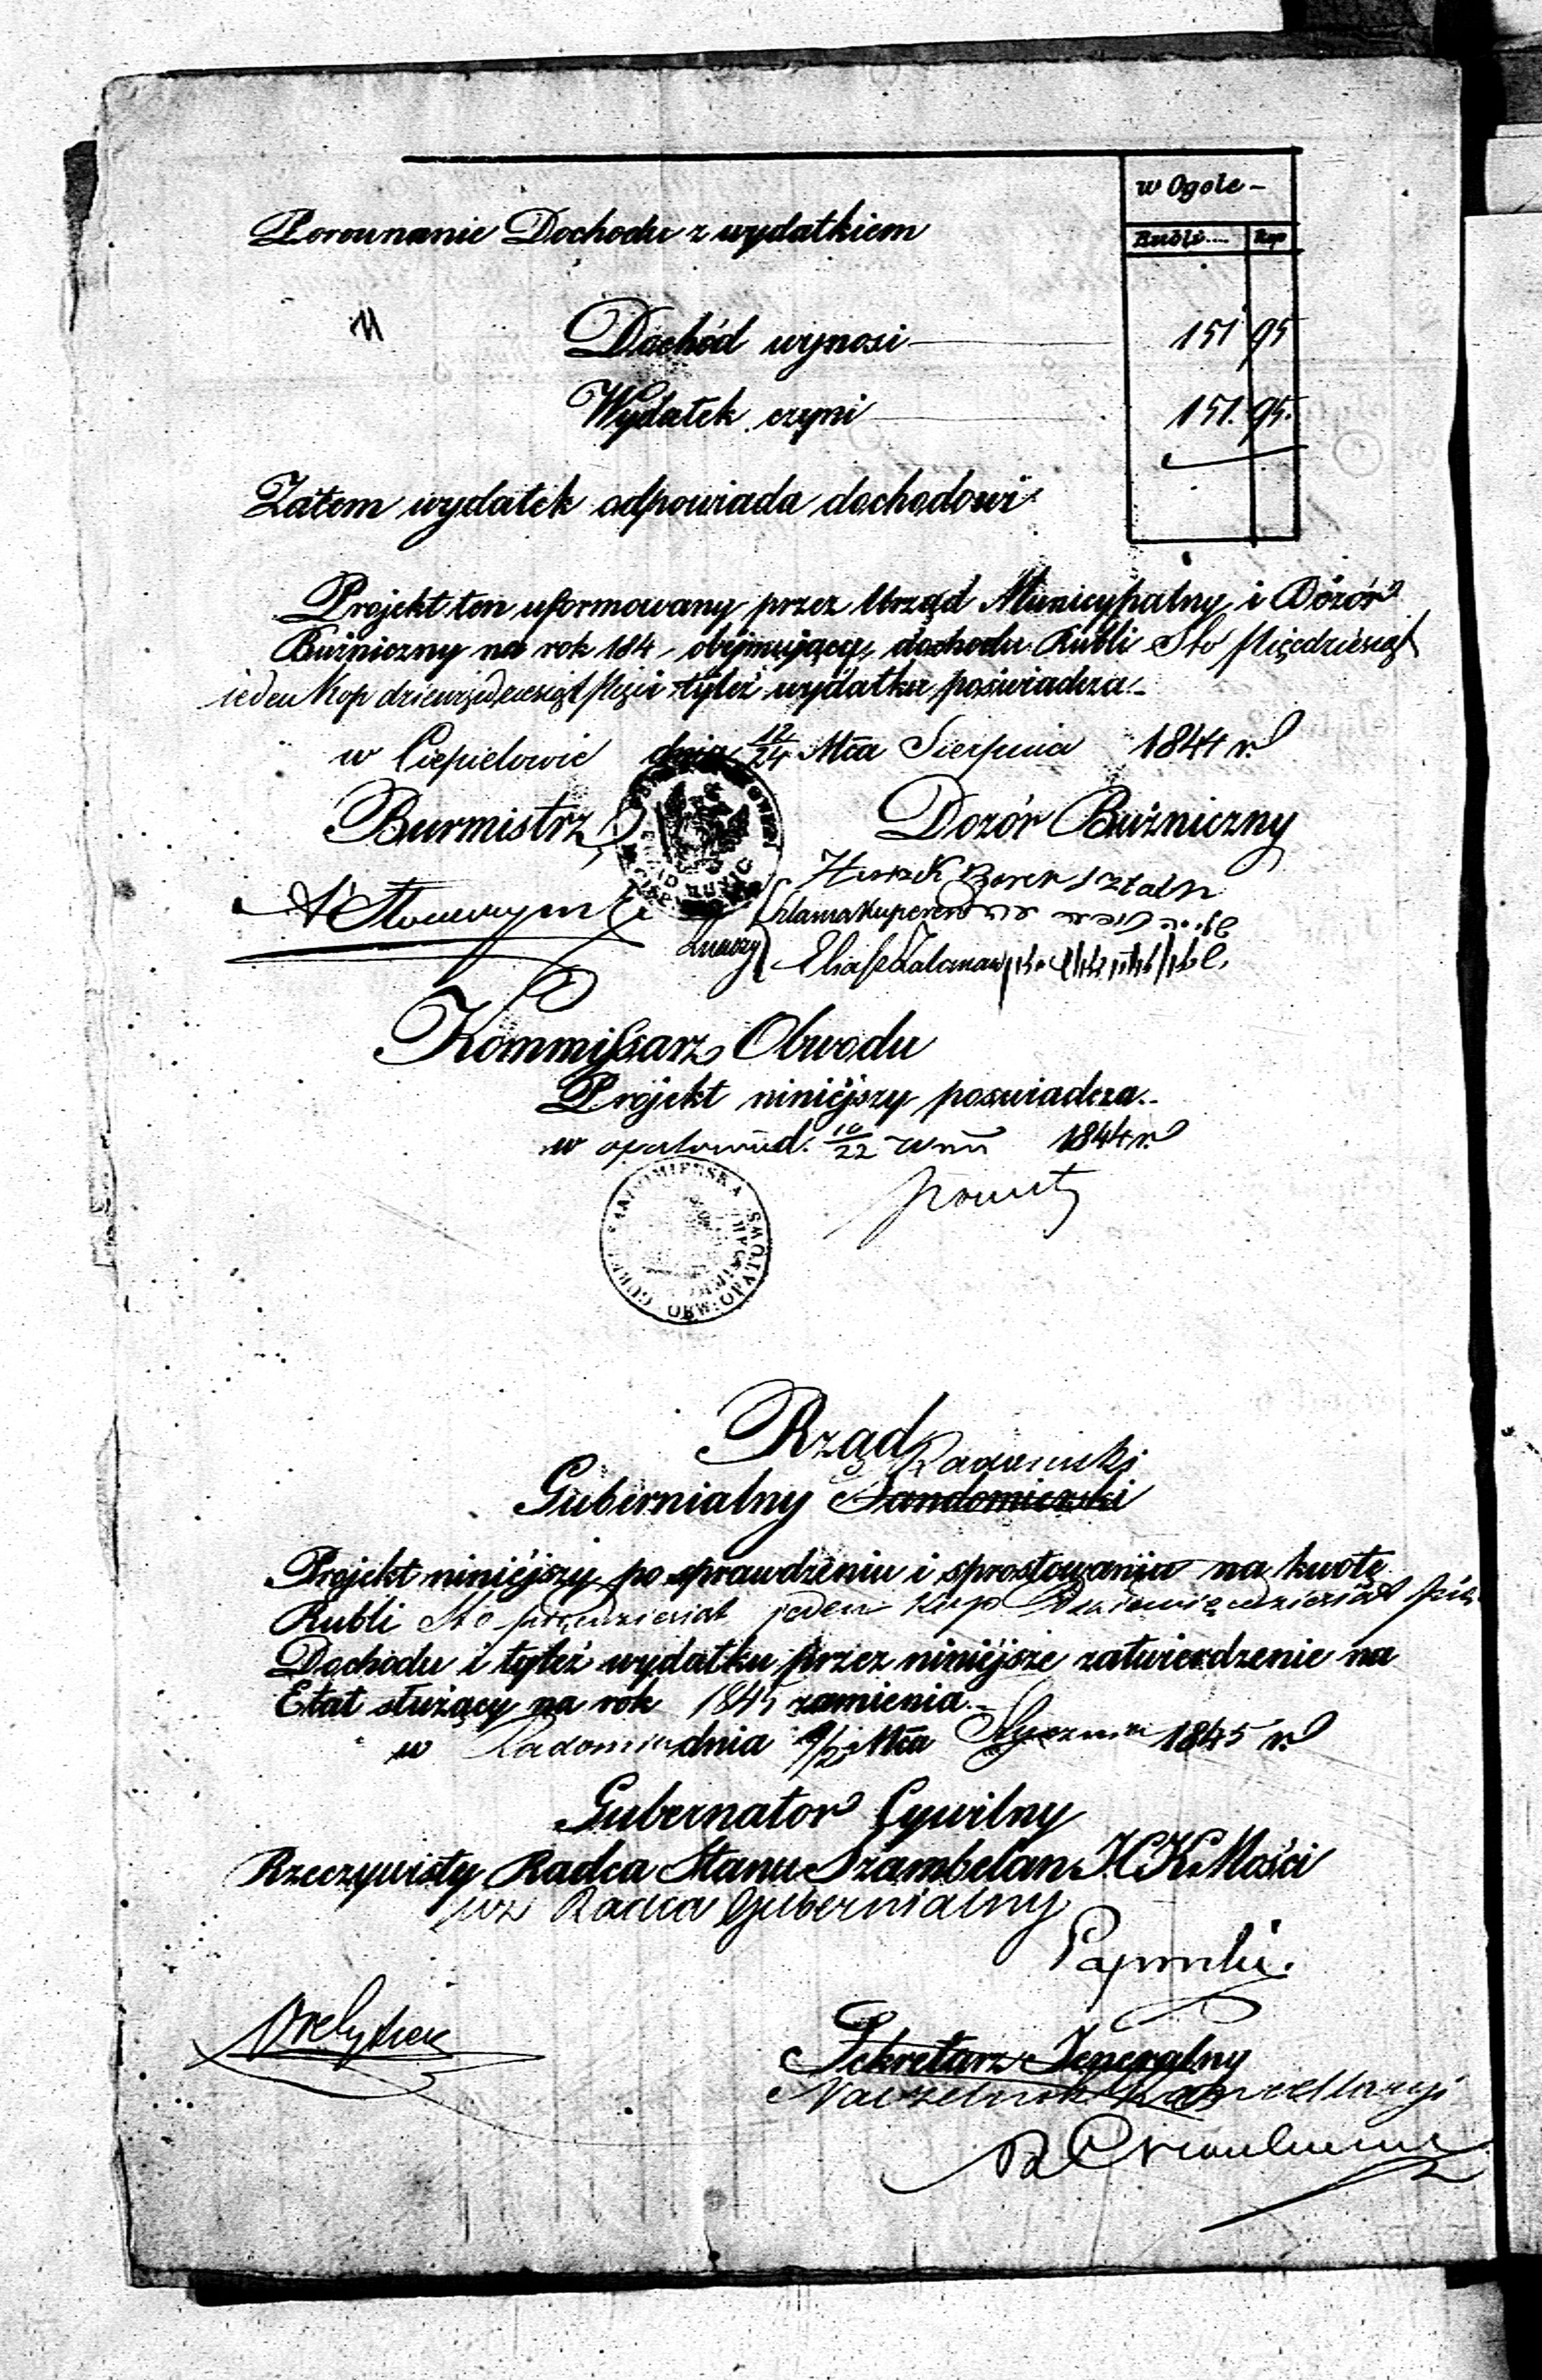 w Ogole -
Porownanie Dochodu z wydatkiem
Rubli.... Kop
Dochód wynosi 151 95
Wydatek czyni 151. 95.
Zatem wydatek odpowiada dochodowi
Projekt ten uformowany przez Urząd Municypalny i Dozór
Bużniczny na rok 184 - obejmujący dochodu Rubli Sto Pięcdziesiąt
jeden Kop dziewięcdziesiąt pięć i tyleż wydatku poświadcza.
w Ciepielowie dnia 12/24 Mca Sierpnia 1844 r.
Burmistrz Dozór Bużniczny
Szlama
Kommissarz Obwodu
Projekt niniejszy poswiadcza.
w d. 10/22 1844 r.
GUB: SANDOMIERSKA
OBW: OPATOWS
Rząd
Radomski
Gubernialny Sandomierski
Projekt niniejszy po sprawdzeniu i sprostowaniu na kwotę
Rubli Sto pięcdziesiat jeden Kop Dziewięcdziesiat pięć
Dochodu i tyleż wydatku przez niniejsze zatwierdzenie na
Etat służący na rok 1845 zamienia.
w Radomiu dnia Mca Stycznia 1845 r.
Gubernator Cywilny
Rzeczywisty Radca Stanu Szambelan J C K Mości
Radca Gubernialny
Sekretarz Jeneralny
Naczelnik Kancellaryi